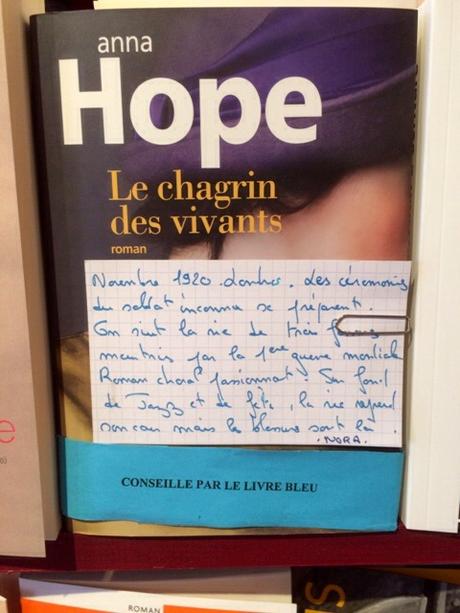 anna
Hope
Le chagrin
des vivants
roman
Novembre 1920. Londres. Les cérémonies
du soldat inconnu se préparent.
On suit la vie de trois femmes
meurtries par la 1ère guerre mondiale
Roman choral passionnant. Sur fond
de Jazz et de fête, la vie reprend
son cours mais les blessures sont là.
NORA.
CONSEILLE PAR LE LIVRE BLEU
e
6)
ROMAN
S